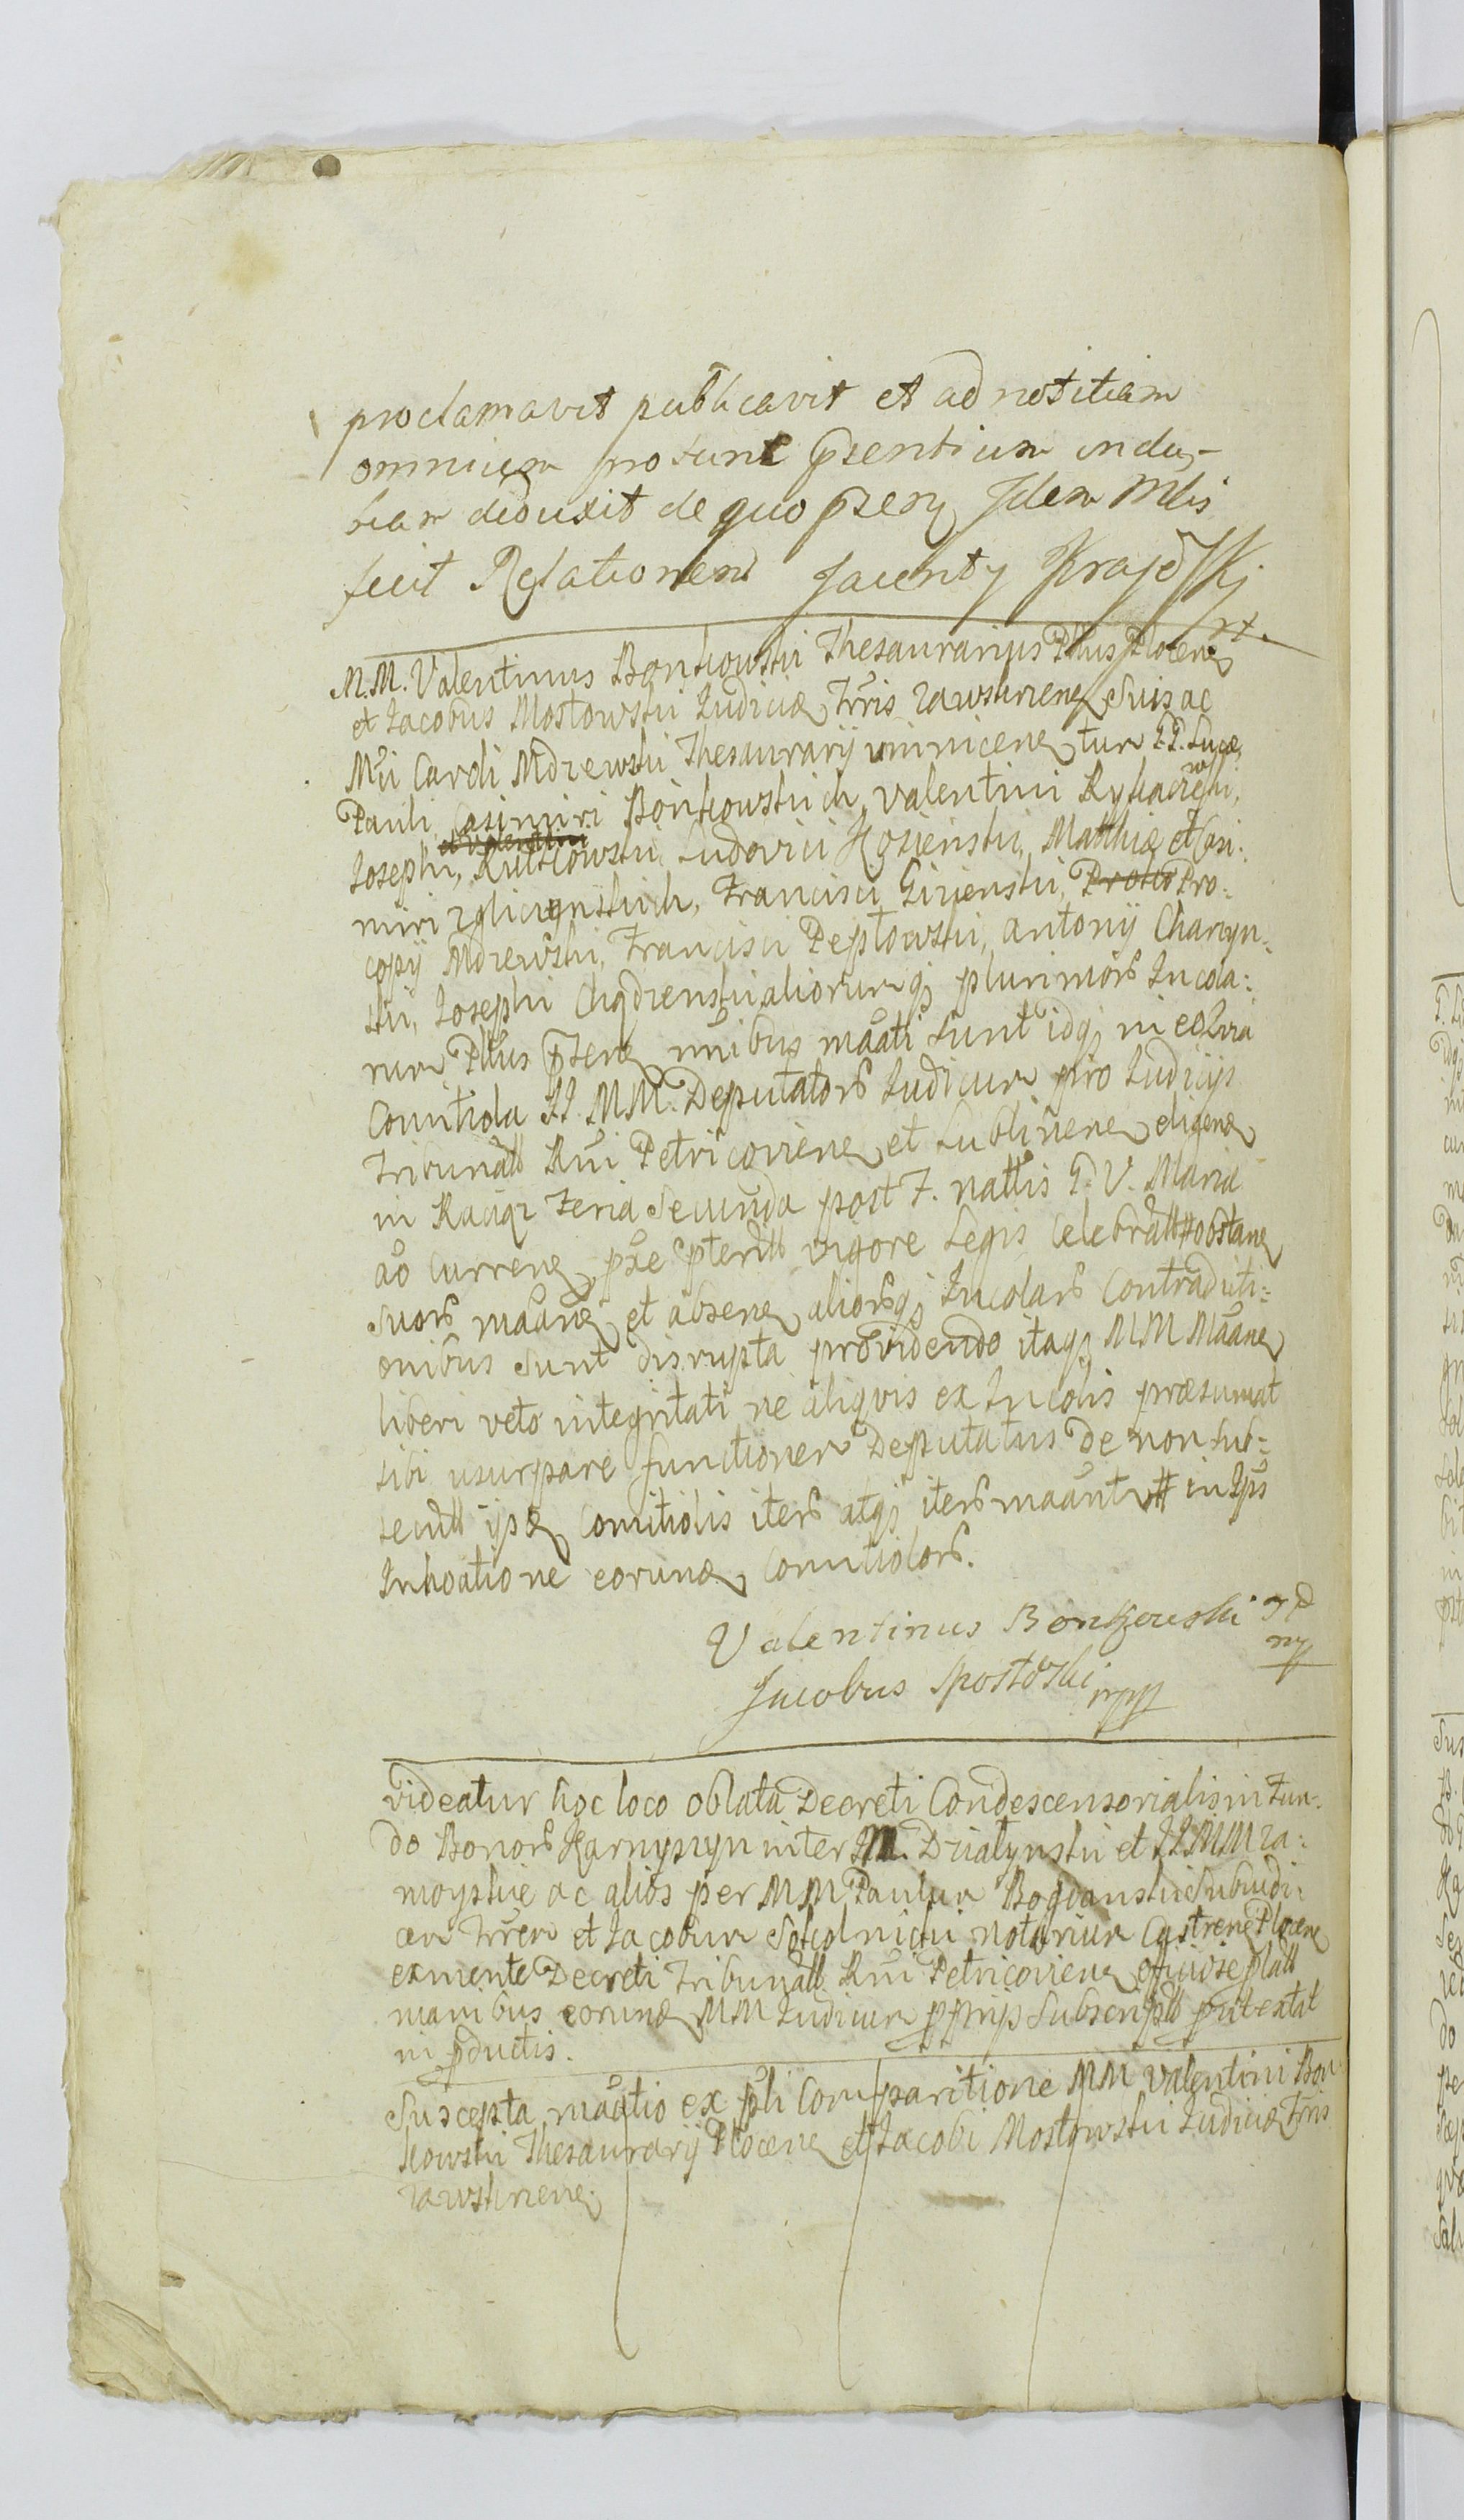 proclamavit publicavit et ad notitiam
omnium pro tunc pñsentium indu-
biam deduxit de quo pñsens Idem Mlis
fecit Relationem Jacenty Kraje͠Skj
M.M. Valentinus Bonkowski Thesaurarius Pttus Plocens
et Jacobus Mostowski Judicia Trr͠is zawskriens Suis ac
Mci Caroli Mdzewski Thesaurarij winnicens tum GG. Lucæ,
Pauli, Casimiri Bonkowskich, Valentini Rybacze͠wski,
Josephi, Rutkowski, Ludovici Kosienski, Matthiæ et Casi:
miri Zgliczynskich, Francisci Gizienski, Pro:
copij Mdzewski, Francisci Peptowski, Antonij Charzyn:
ski, Josephi Chądzenski aliorumq; plurimor͠ Incola:
rum Pttus pñtens nñibus ma͠ati sunt idq; in eo Qvia
Comitiola II. MM. Deputator͠ Judicum pro Judicijs
Tribunal͠l Rñi Petricoviens et Lublinens eligens
in Raciąz Feria Secunda post F. nattis G. V. Maria
a͠o currens, p͠xe p͠terit͠l vigore Legis Celebrat͠l # obstans
suor͠ ma͠ans et absens alior͠q; Incolar͠ Contradicti:
onibus sunt disrupta providendo itaq; MM Ma͠ans
liberi veto integritati ne aliqvis ex Incolis præsumat
sibi usurpare functionem Deputatus de non sub:
secut͠l ips Comitiolis iter͠ atq; iter͠ ma͠antr # in Ips
Inhoatione eorund Comitiolor͠.
Valentinus Bonkowski TP
mp
Jacobus Mosto͠ski mpp
Videatur hoc loco oblata Decreti Condescensorialis in Fun:
do Bonor͠ Karnyszyn inter M. Dzialynski et II MM Za:
moyskie ac alios per MM Paulum Bogdanski Subiudi:
cem Trrem et Jacobum Sokolnicki notarium Castrens Plocens
ex mente Decreti Tribunal͠l Rñi Petricoviens officiose plat͠l
manibus eorund MM Judicum pprijs Subscript͠l prut extat
in pductis.
Suscepta ma͠atio ex p͠li Comparitione MM Valentini Bon:
kowski Thesaurarij Plocens et Jacobi Mostowski Judicia Trris
zawskriens.